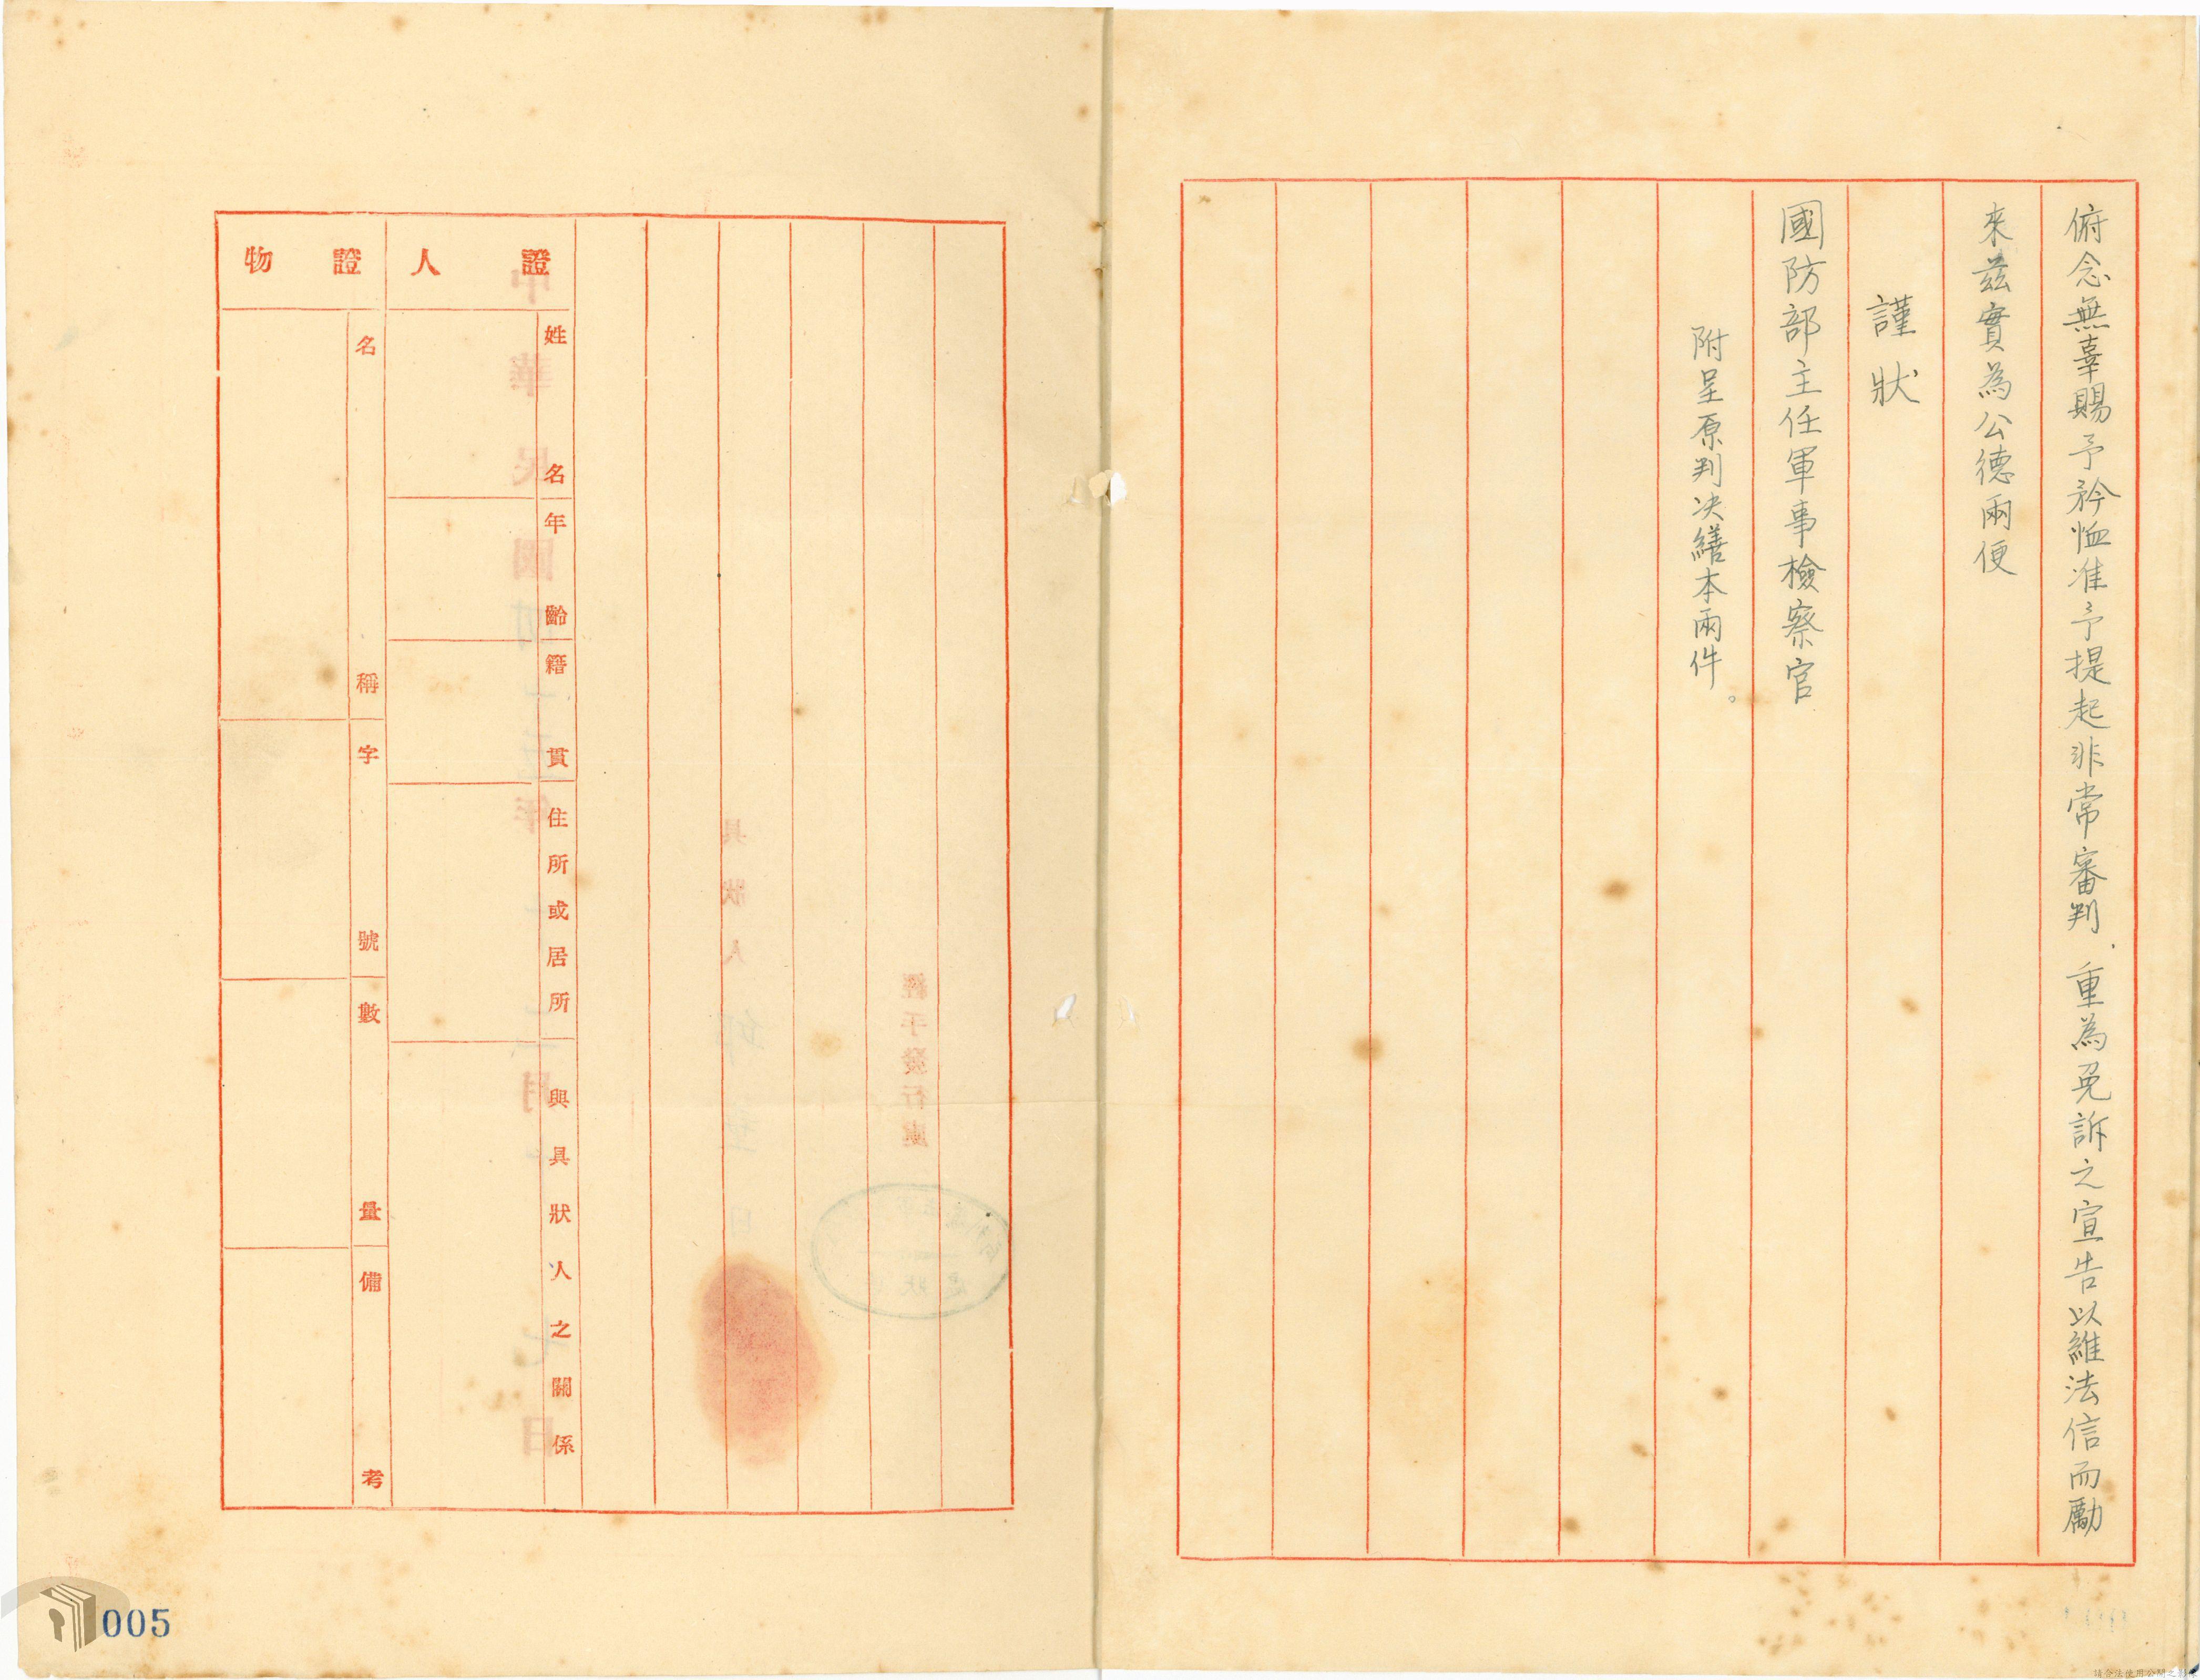 俯念無辜賜予矜恤准予提起非常審判．重為免訴之宣告以維法信而勵
來茲實為公德兩便
謹狀
國防部主任軍事檢察官
附呈原判決繕本兩件。
證人
姓名
年齡
籍貫
住所或居所
與具狀人之關係
證物
名稱
字號
數量
備考
005